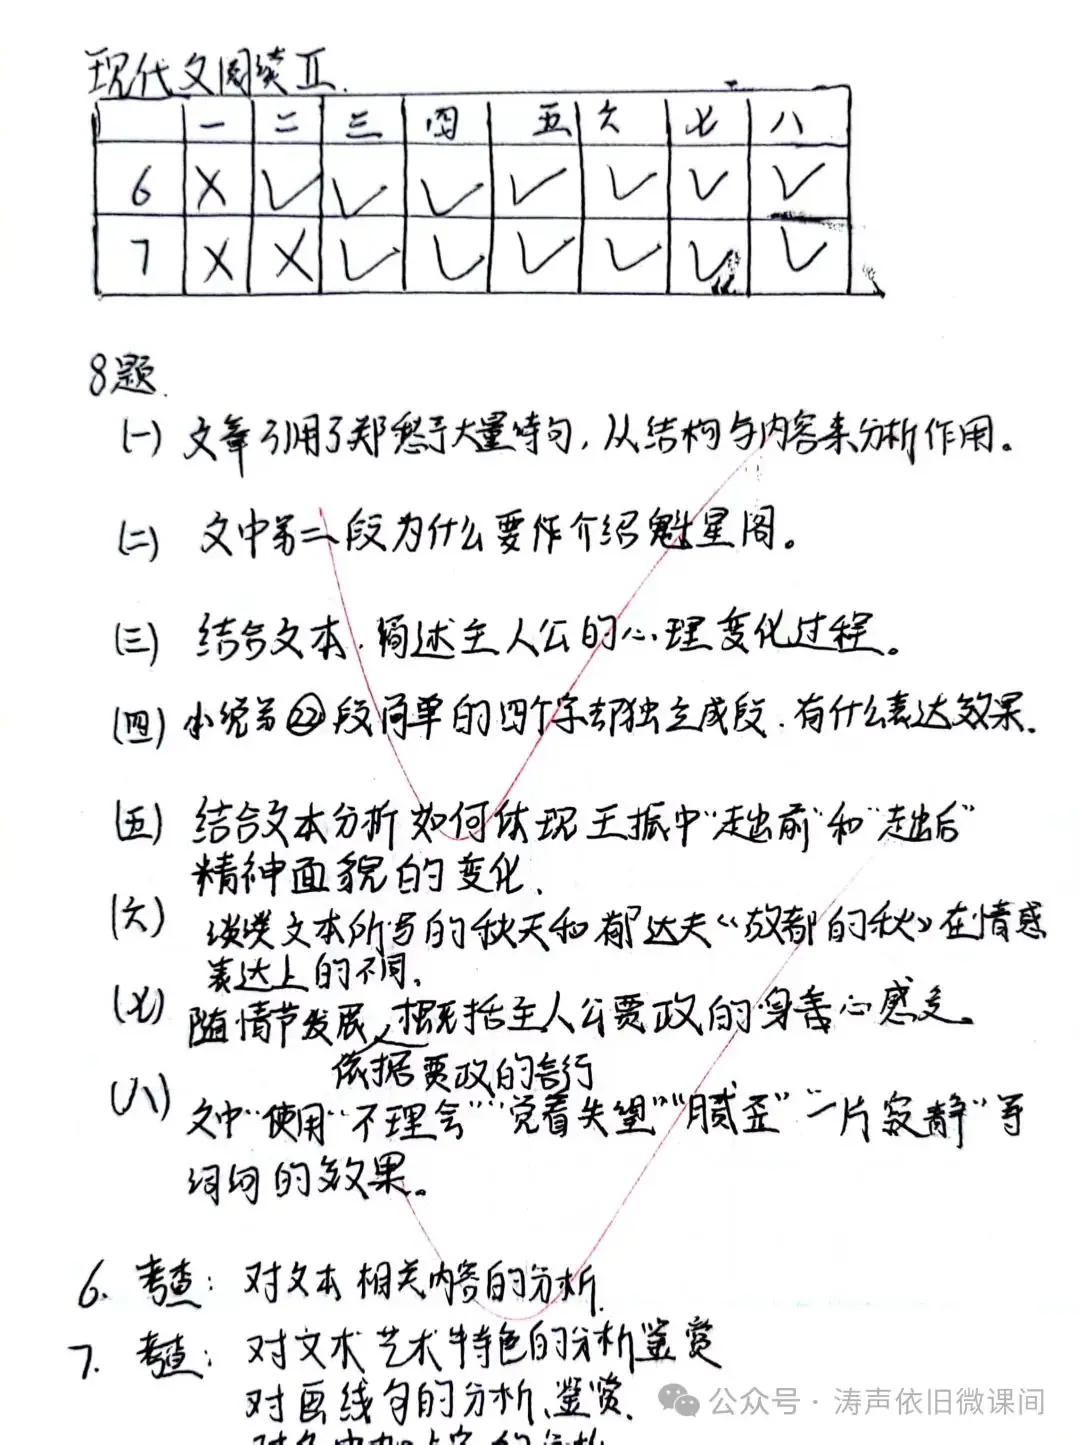 现代文阅读Ⅱ.
一 二 三 四 五 六 七 八
6 × ✓ ✓ ✓ ✓ ✓ ✓ ✓
7 × × ✓ ✓ ✓ ✓ ✓ ✓
8题.
(一) 文章引用了郑愁予大量诗句,从结构与内容来分析作用。
(二) 文中第二段为什么要作介绍魁星阁。
(三) 结合文本.简述主人公的心理变化过程。
(四) 小说第㉒段简单的四个字却独立成段.有什么表达效果.
(五) 结合文本分析如何体现王振中“走出前”和“走出后”
精神面貌的变化.
(六) 谈谈文本所写的秋天和郁达夫《故都的秋》在情感
表达上的不同.
(七) 随情节发展,概括主人公贾政的身善心感受。
依据贾政的言行
(八) 文中“使用“不理会”“觉着失望”“腻歪”“一片寂静”等
词句的效果。
6. 考查: 对文本相关内容的分析.
7. 考查: 对文本艺术特色的分析鉴赏
对画线句的分析、鉴赏.
公众号·涛声依旧微课间